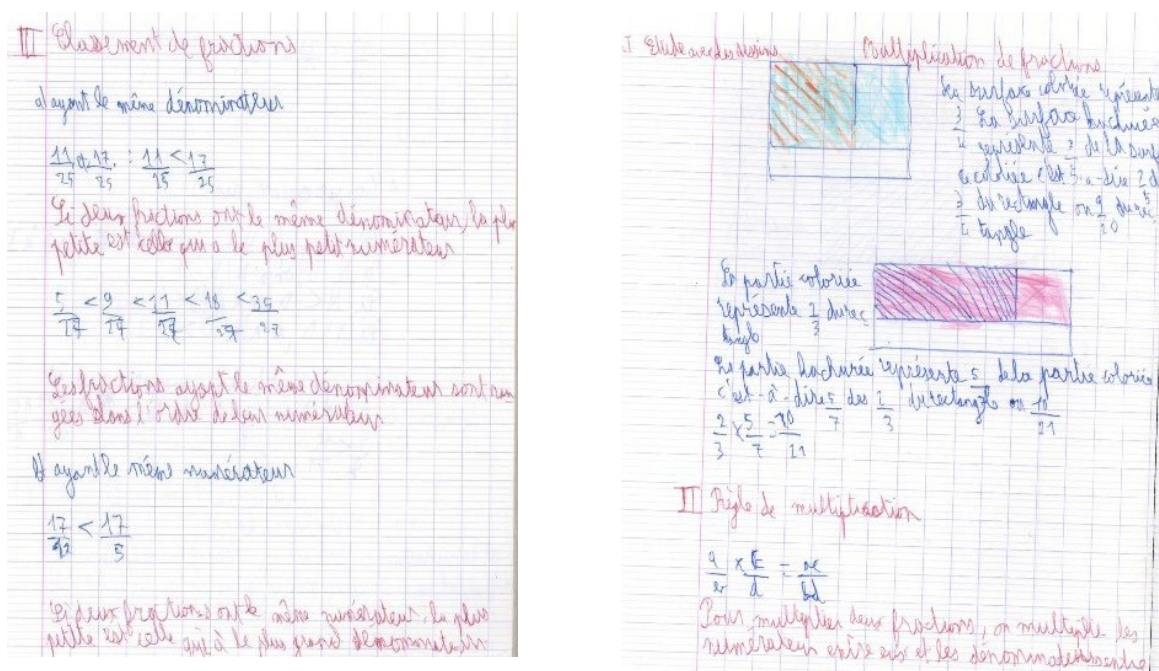 II Classement de fractions
a) ayant le même dénominateur
11/25 et 17/25 : 11/25 < 17/25
Si deux fractions ont le même dénominateur, la plus
petite est celle qui a le plus petit numérateur
5/27 < 9/27 < 11/27 < 18/27 < 35/27
Les fractions ayant le même dénominateur sont ran
gées dans l'ordre de leur numérateur
b) ayant le même numérateur
17/42 < 17/5
Si deux fractions ont le même numérateur, la plus
petite est celle qui à le plus grand dénominateur
I Etude avec des dessins
Multiplication de fractions
La surface coloriée représente
3/4 La surface hachurée
représente de la surf
coloriée c'est-à-dire
3/4 du rectangle ou 9/20 du rec
tangle
La partie coloriée
représente 2/3 du rec
tangle
La partie hachurée représente 5/7 de la partie coloriée
c'est-à-dire 5/7 des 2/3 du rectangle ou 10/21
2/3 × 5/7 = 10/21
II Règle de multiplication
a/b × c/d = ac/bd
Pour multiplier deux fractions, on multiplie les
numérateurs entre eux et les dénominateurs entre